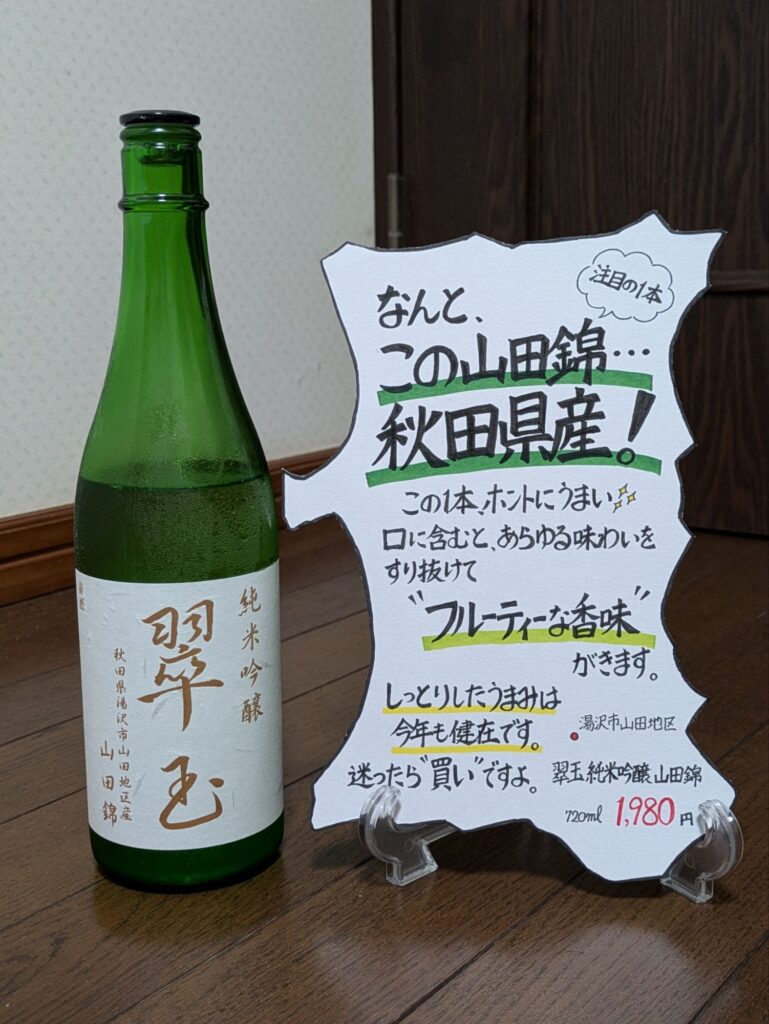 純米吟醸
翠玉
秋田県湯沢市山田地区産
山田錦
注目の1本
なんと、
この山田錦…
秋田県産!
この1本、ホントにうまい
口に含むと、あらゆる味わいを
すり抜けて
"フルーティーな香味"
がきます。
しっとりしたうまみは
今年も健在です。
湯沢市山田地区
迷ったら"買い"ですよ。
翠玉 純米吟醸 山田錦
720ml 1,980円